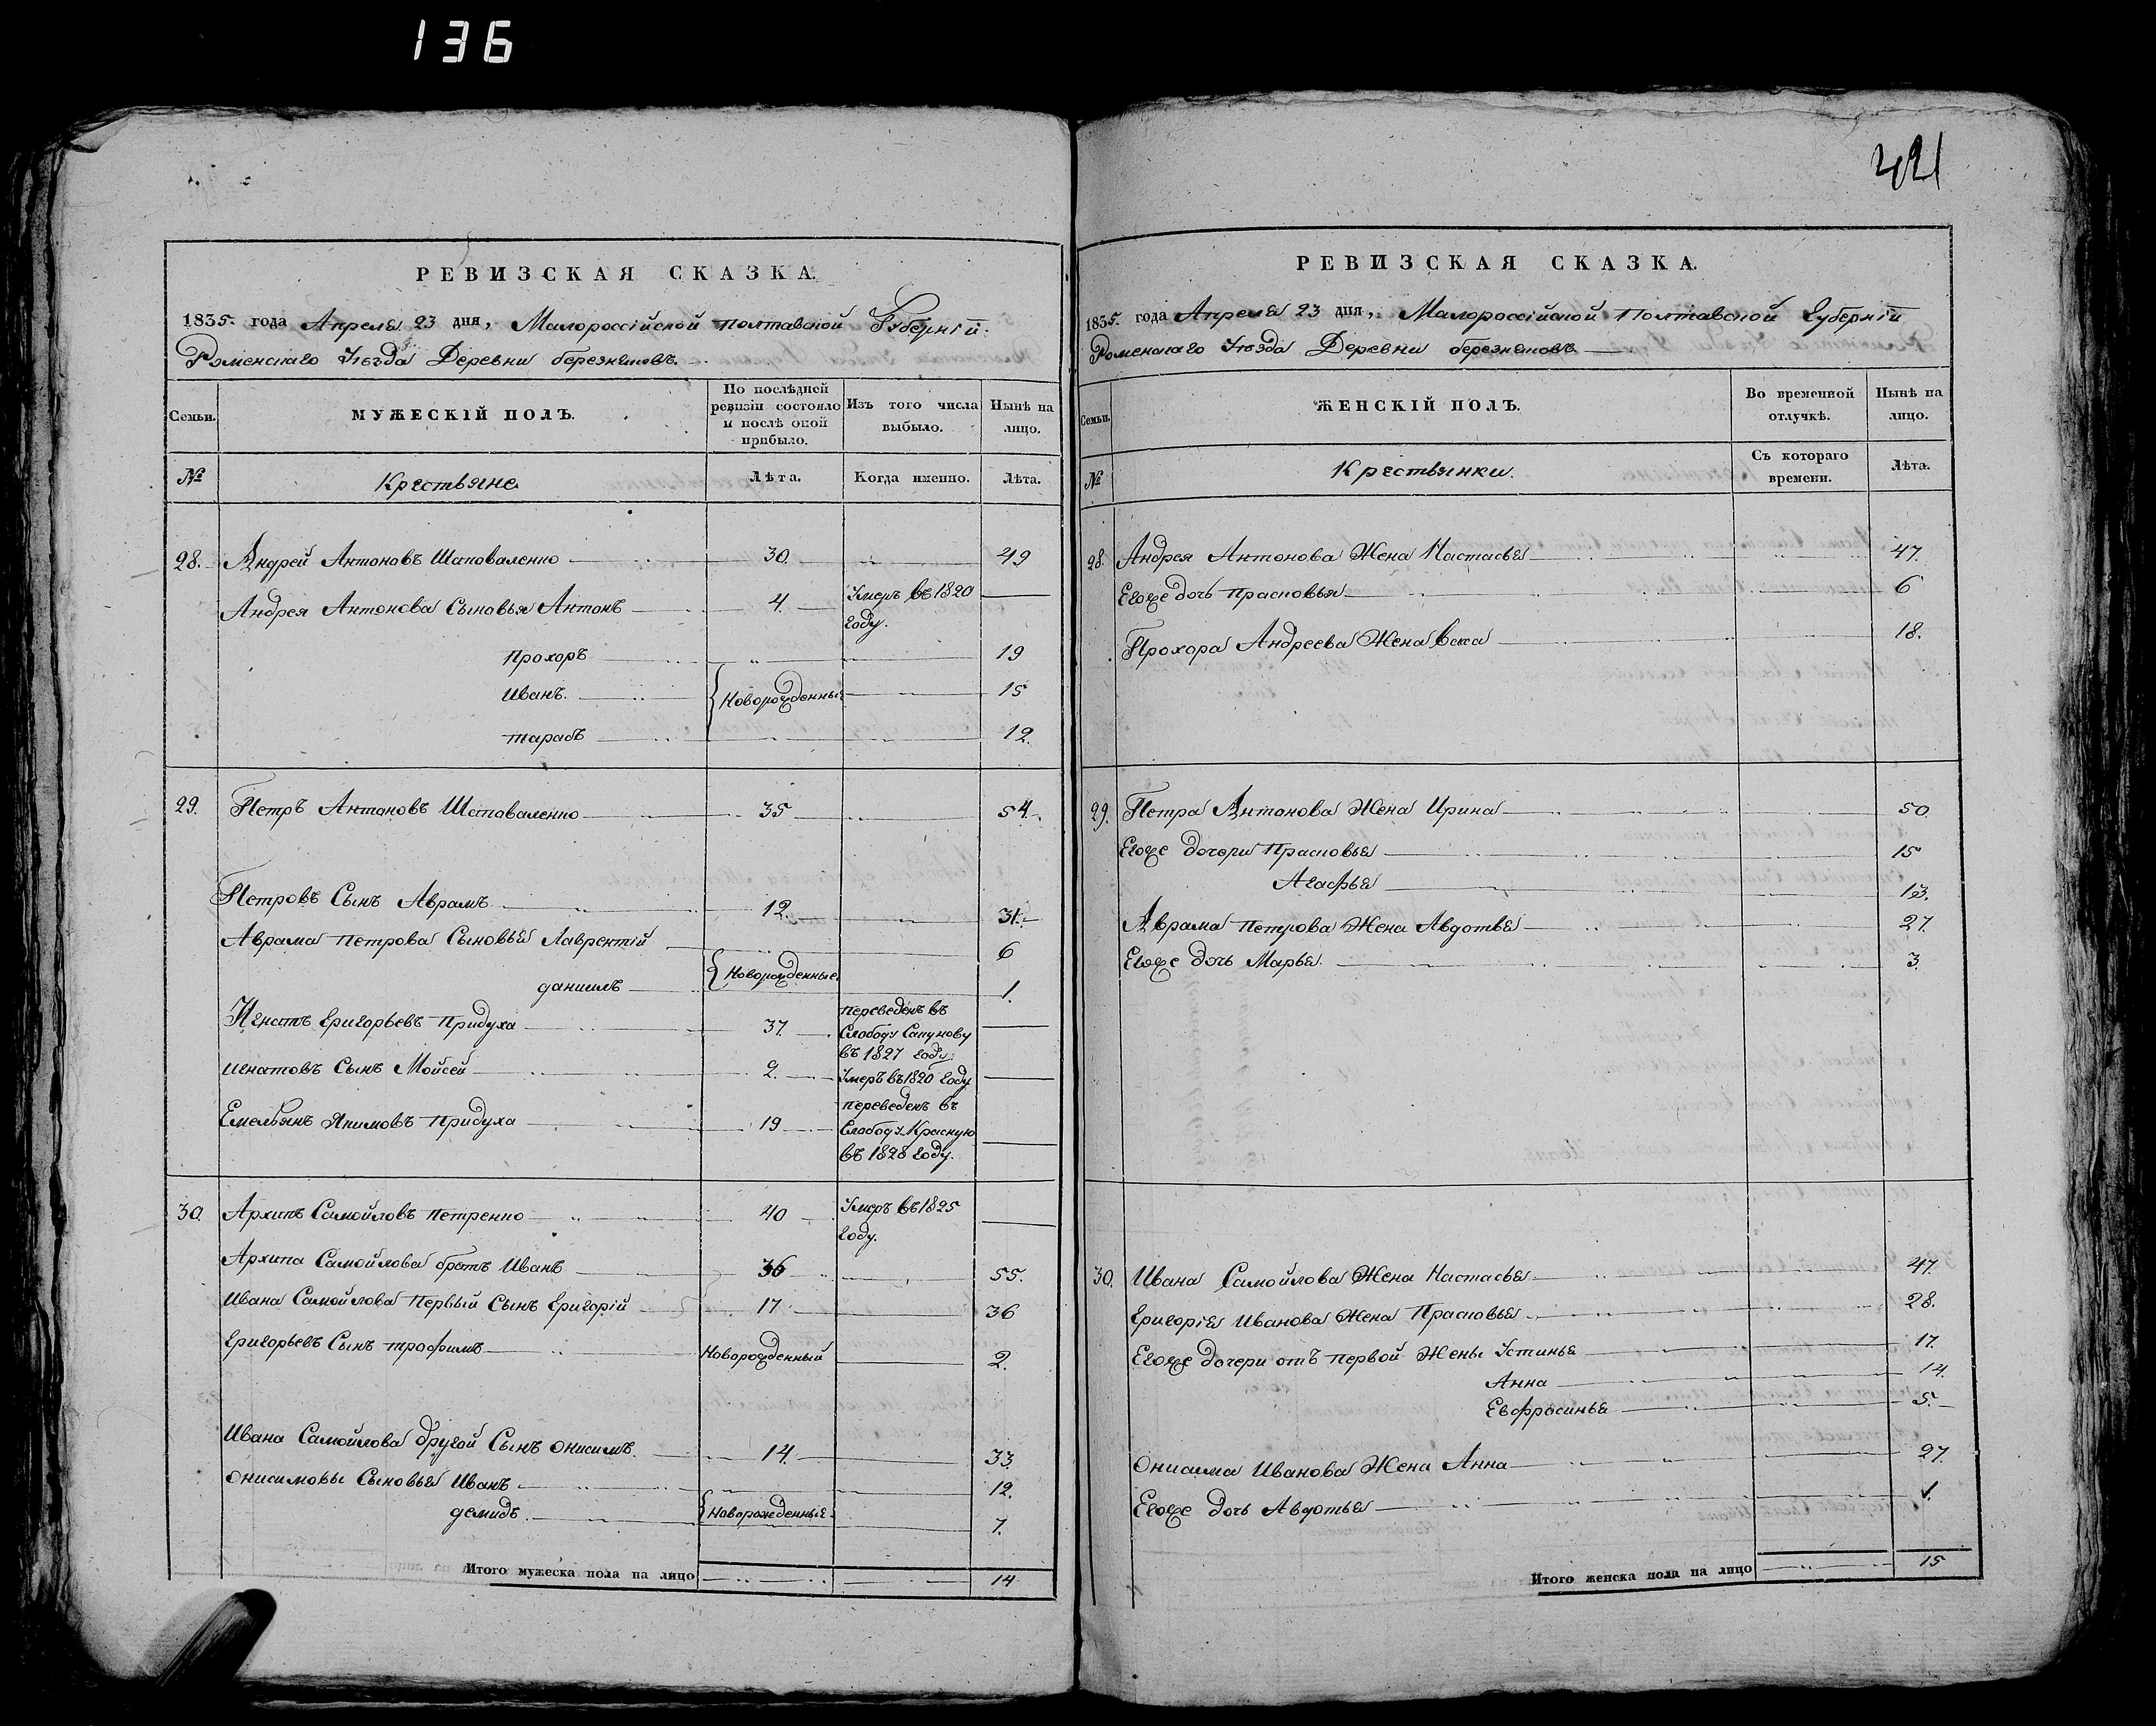 136
421
РЕВИЗСКАЯ СКАЗКА.
1835. года Апреля 23 дня, Малороссійской Полтавской Губерніи.
Роменскаго Уѣзда Деревни березняковъ.
Семьи.
МУЖЕСКІЙ ПОЛЪ.
По послѣдней ревизіи состояло и послѣ оной прибыло.
Изъ того числа выбыло.
Нынѣ на лицо.
№
Крестьяне
Лѣта.
Когда именно.
Лѣта.
28. Андрей Антоновъ Шаповаленко 30. 49
Андрея Антонова Сыновья Антонъ 4. Умеръ въ 1820 году.
Прохоръ 19
Иванъ. Новорожденные 15
тарасъ 12.
29. Петръ Антоновъ Шаповаленко 35 54.
Петровъ Сынъ Аврамъ 12. 31.
Аврама Петрова Сыновья Лаврентій 6
Новорожденные
даниилъ 1.
Игнатъ Григорьевъ Придуха 37. переведенъ въ Слободу Сапунову въ 1827 году.
игнатовъ Сынъ Мойсей 2. Умеръ въ 1820 году
Емельянъ Якимовъ Придуха 19 переведенъ въ Слободу Красную въ 1828 году.
30. Архипъ Самойловъ Петренко 40 Умеръ въ 1825 году.
Архипа Самойлова братъ Иванъ 36 55.
Ивана Самойлова Первый Сынъ Григорій 17 36
Григорьевъ Сынъ трофимъ Новорожденный 2.
Ивана Самойлова другой Сынъ Онисимъ. 14. 33.
Онисимовы Сыновья Иванъ 12.
демидъ. Новорожденные 7.
Итого мужеска пола на лицо 14
РЕВИЗСКАЯ СКАЗКА.
1835. года Апреля 23 дня, Малороссійской Полтавской Губерніи
Роменскаго Уѣзда Деревни березняковъ
Семьи.
ЖЕНСКІЙ ПОЛЪ.
Во временной отлучкѣ.
Нынѣ на лицо.
№
Крестьянки.
Съ котораго времени.
Лѣта.
28. Андрея Антонова Жена Настасья 47.
Егоже дочь Прасковья 6
Прохора Андреева Жена 18.
29. Петра Антонова Жена Ирина 50.
Егоже дочери Прасковья 15
Агафья 13.
Аврама Петрова Жена Авдотья 27
Егоже дочь Марья. 3.
30. Ивана Самойлова Жена Настасья 47.
Григорія Иванова Жена Прасковья 28.
Егоже дочери отъ первой Жены Устинья 17.
Анна 14.
Евфросинья 5.
Онисима Иванова Жена Анна 27.
Егоже дочь Авдотья 1.
Итого женска пола на лицо 15